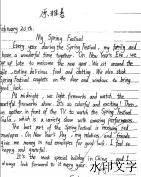 原雅喜
February 20th
My Spring Festival
Every year during the Spring Festival, my family and I
have a wonderful time together. On New Year's Eve, we
stay up late to welcome the new year. We sit around the
table, eating delicious food and chatting. We also stick
Spring Festival couplets on the door and windows to bring
good luck.
At midnight, we light fireworks and watch the
beautiful fireworks show. It's so colorful and exciting! Then,
we gather in front of the TV to watch the Spring Festival
Gala, which is a variety show with amazing performances.
The best part of the Spring Festival is receiving red
envelopes. On New Year's Day, my relatives and friends
give me money in red envelopes for good luck. I feel so
happy and grateful.
It's the most special holiday in China, and I
always look forward to it every year.
水印文字